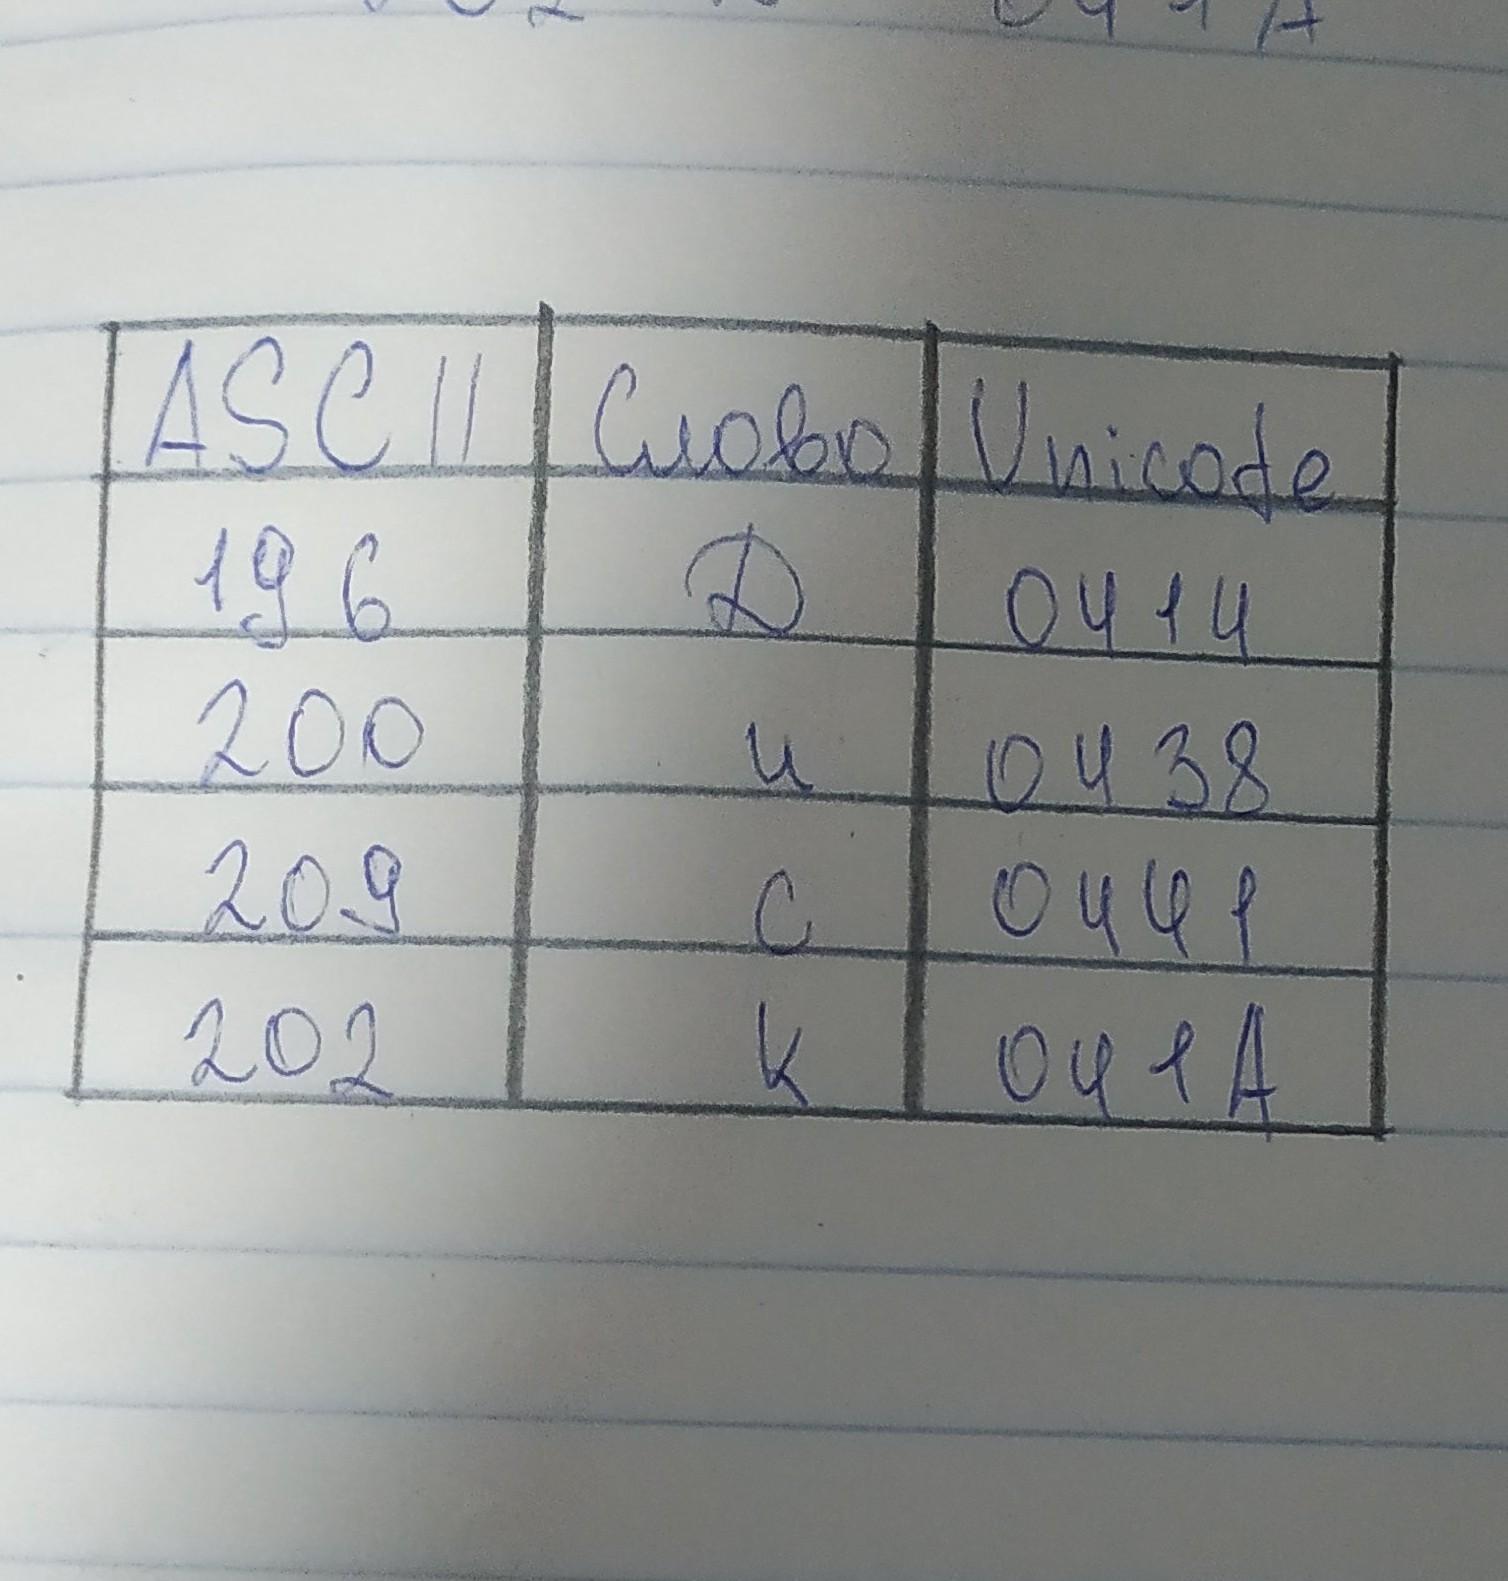 041A
ASCII Слово Unicode
196 Д 0414
200 и 0438
209 с 0441
202 к 041A